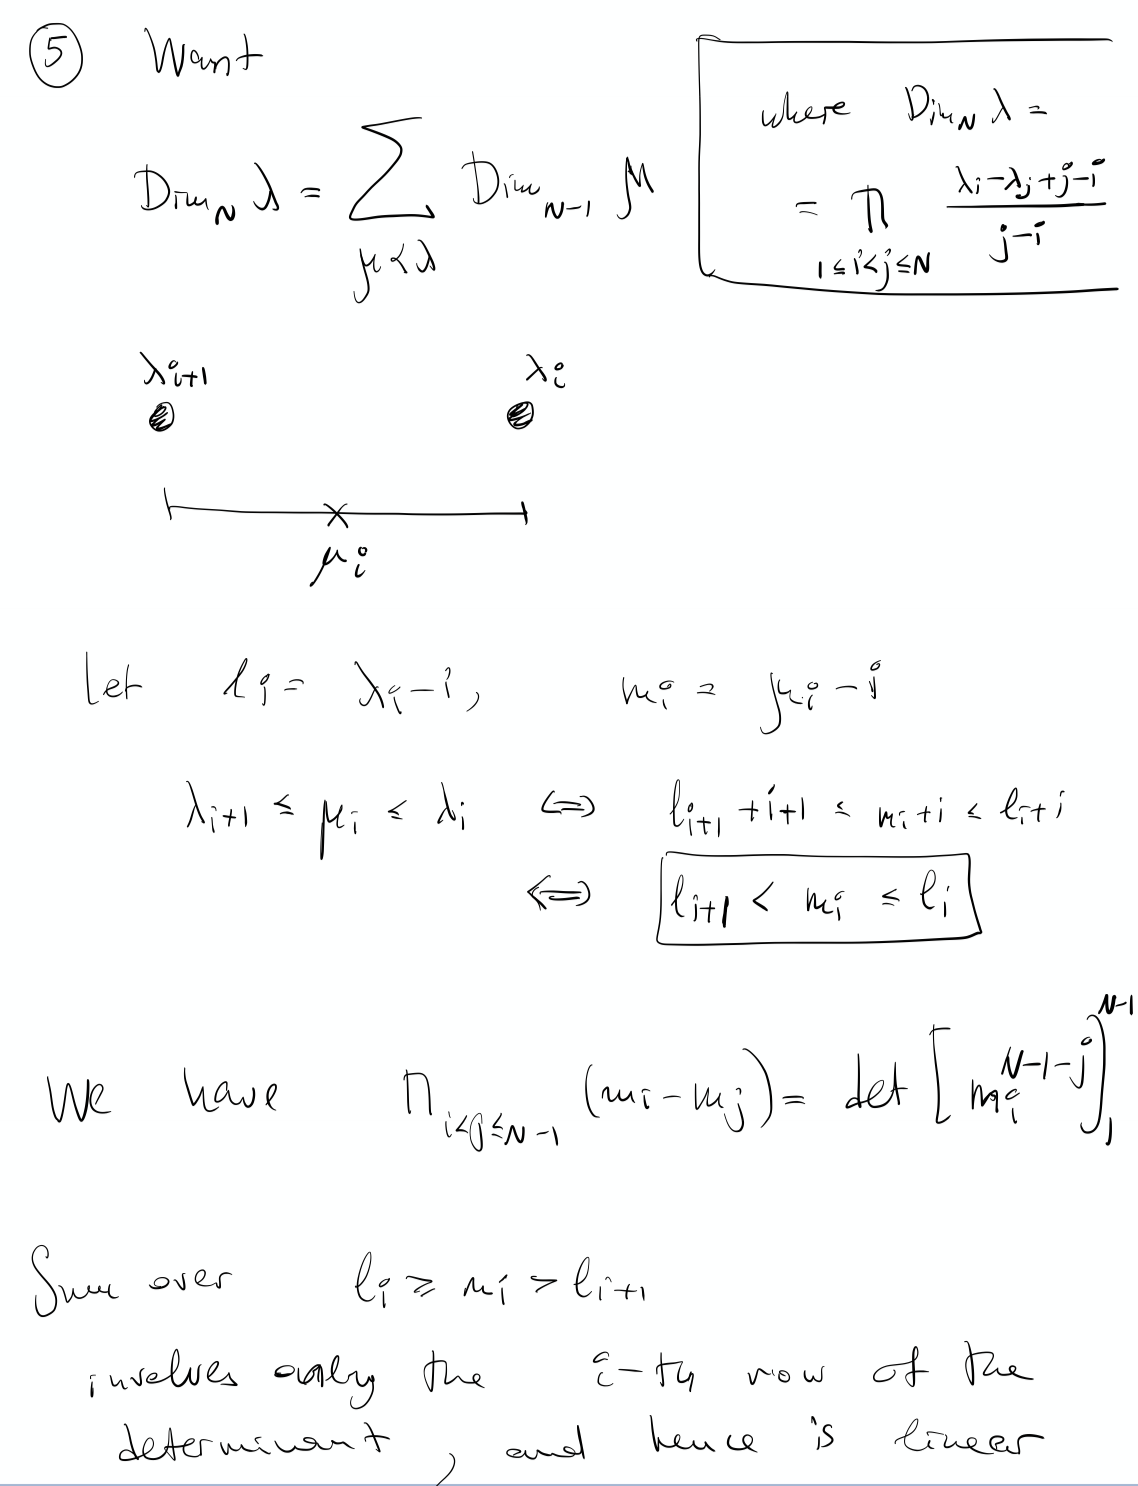 ⑤ Want
where Dim_N λ =
= Π_{1≤i<j≤N} (λ_i-λ_j+j-i)/(j-i)
Dim_N λ = Σ_{μ≺λ} Dim_{N-1} μ
λ_{i+1} λ_i
μ_i
Let l_i = λ_i-i, m_i = μ_i-i
λ_{i+1} ≤ μ_i ≤ λ_i ⇔ l_{i+1}+i+1 ≤ m_i+i ≤ l_i+i
⇔ l_{i+1} < m_i ≤ l_i
We have Π_{i<j≤N-1} (m_i-m_j) = det [m_i^{N-1-j}]_1^{N-1}
Sum over l_i ≥ m_i > l_{i+1}
involves only the i-th row of the
determinant, and hence is linear